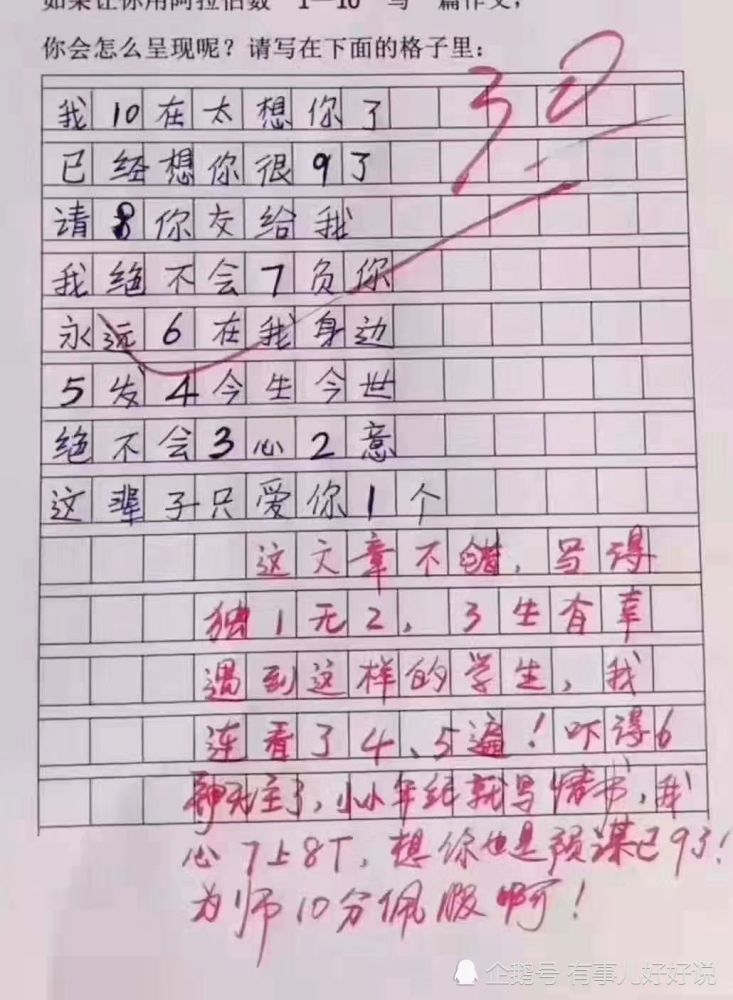 如果让你用阿拉伯数"1—10"写一篇作文，
你会怎么呈现呢？请写在下面的格子里：
30
我10在太想你了
已经想你很9了
请8你交给我
我绝不会7负你
永远6在我身边
5发4今生今世
绝不会3心2意
这辈子只爱你1个
这文章不错，写得
独1无2，3生有幸
遇到这样的学生，我
连看了4、5遍！吓得6
神无主了，小小年纪就写情书，我
心7上8下，想你也是预谋已9了！
为师10分佩服啊！
企鹅号 有事儿好好说